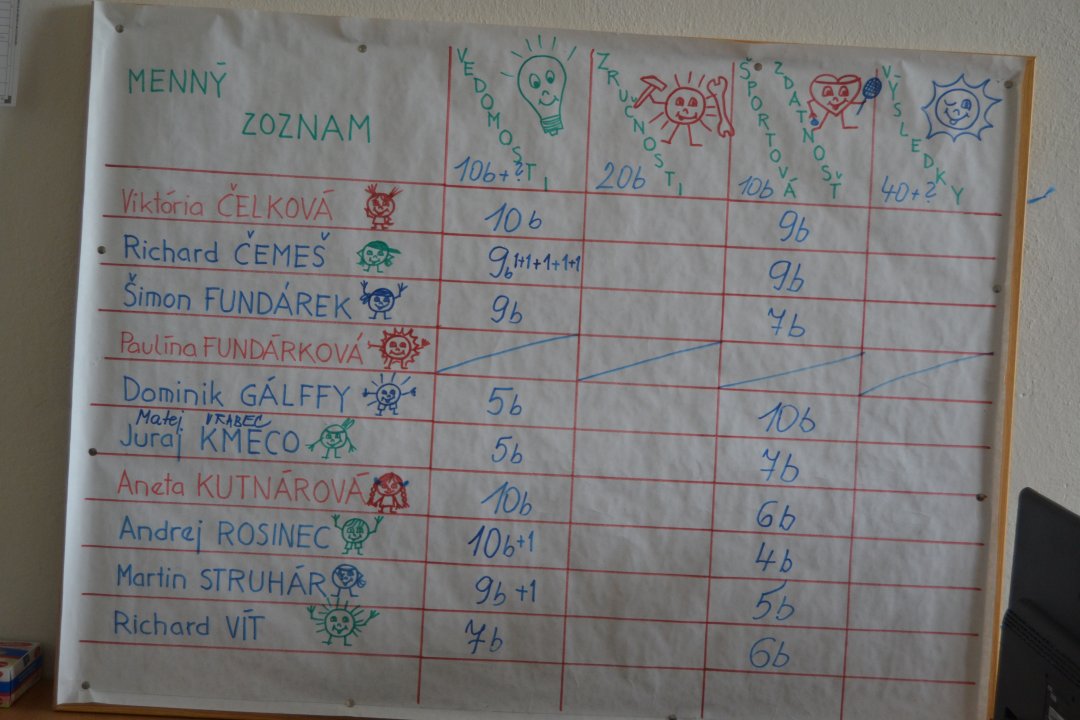 MENNÝ
ZOZNAM
VEDOMOSTI
10b+?
ZRUČNOSTI
20b
ŠPORTOVÁ
ZDATNOSŤ
10b
VÝSLEDKY
40+?
Viktória ČELKOVÁ 10b 9b
Richard ČEMEŠ 9b 1+1+1+1+1 9b
Šimon FUNDÁREK 9b 7b
Paulína FUNDÁRKOVÁ
Dominik GÁLFFY 5b 10b
Matej VRABEC
Juraj KMEČO 5b 7b
Aneta KUTNÁROVÁ 10b 6b
Andrej ROSINEC 10b+1 4b
Martin STRUHÁR 9b +1 5b
Richard VÍT 7b 6b